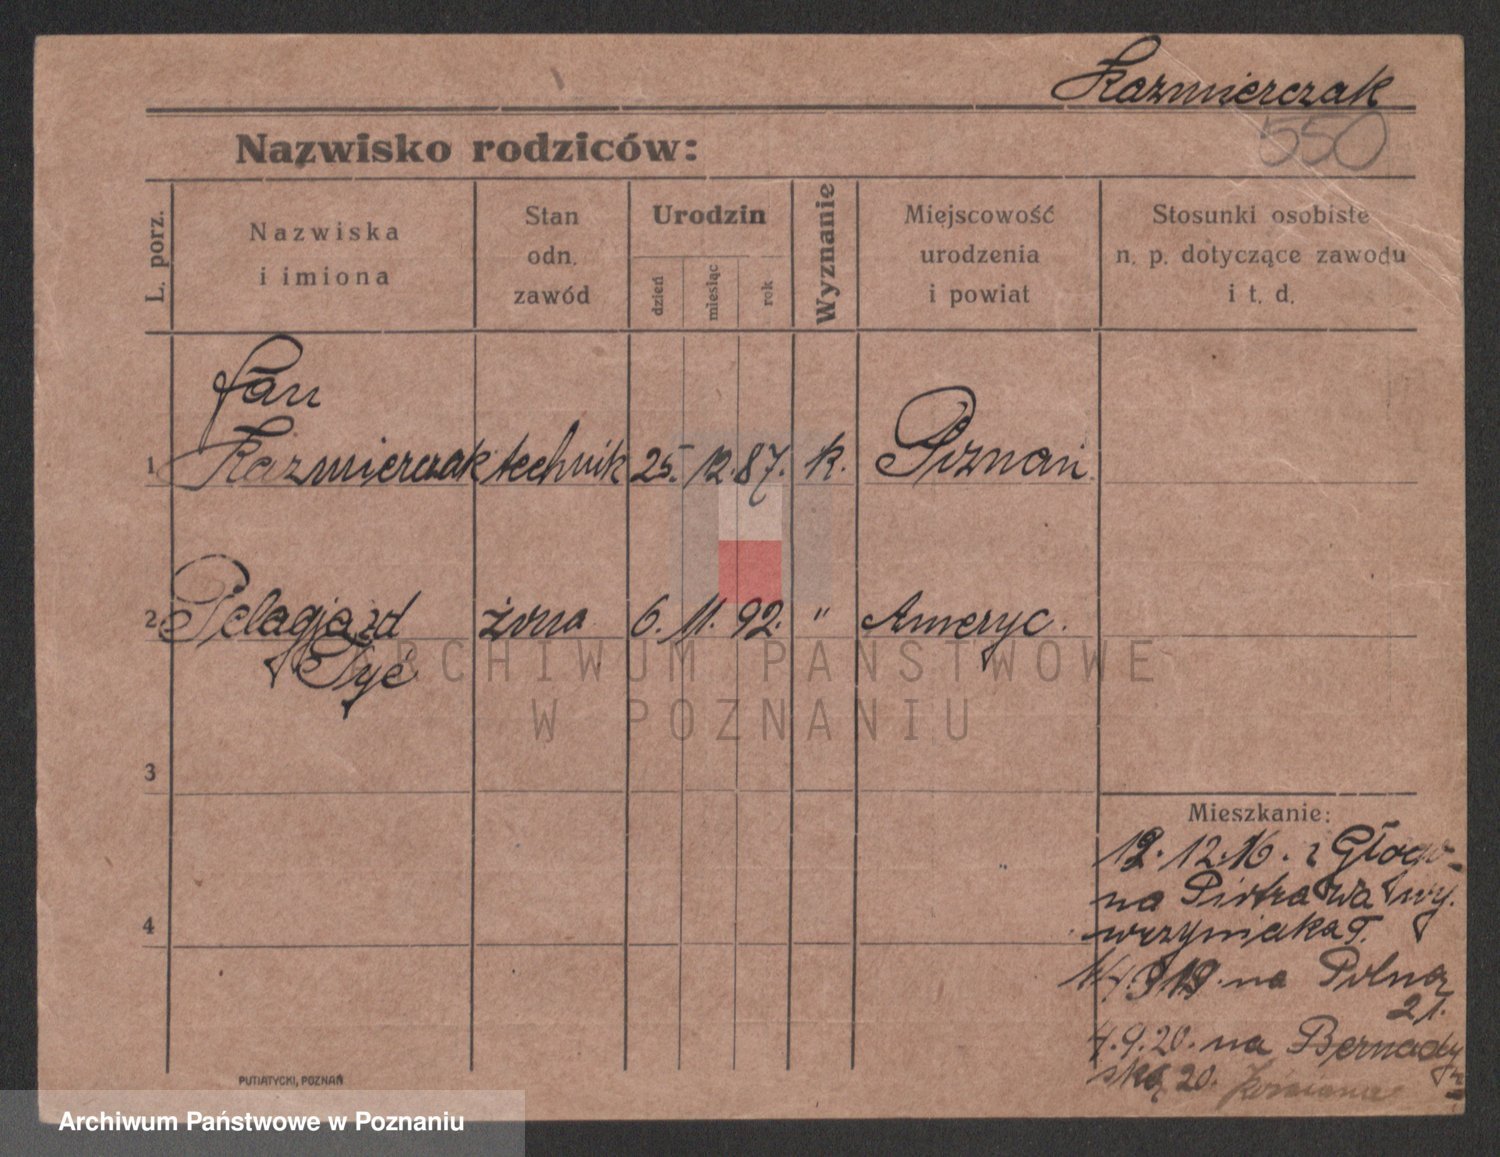 Kazmierczak
550
Nazwisko rodziców:
L. porz.
Nazwiska
i imiona
Stan
odn.
zawód
Urodzin
dzień
miesiąc
rok
Wyznanie
Miejscowość
urodzenia
i powiat
Stosunki osobiste
n. p. dotyczące zawodu
i t. d.
Jan
1 Kazmierczak technik 25. 12. 87. k. Poznań
2 Pelagja zd żona 6. 11. 92. " Ameryc.
Tyć
ARCHIWUM PAŃSTWOWE
W POZNANIU
3
4
Mieszkanie:
12.16. z Głogo-
na Piotra Wawrzyniaka
na Polną
21.
4.9.20. na Bernadyń-
ską 20.
PUTIATYCKI, POZNAŃ
Archiwum Państwowe w Poznaniu